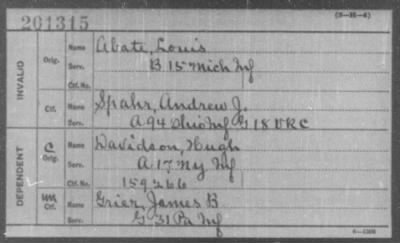 201315
(3-H-4)
INVALID
Orig.
Name Abate, Louis
Serv. B 15 Mich Inf
Ctf. No.
Ctf.
Name Spahr, Andrew J.
Serv. A 94 Ohio Inf G 18 VRC
DEPENDENT
C Orig.
Name Davidson, Hugh
Serv. A 17 Ny Inf
Ctf. No. 159266
Ctf.
Name Grier, James B
Serv. G 31 Pa Inf